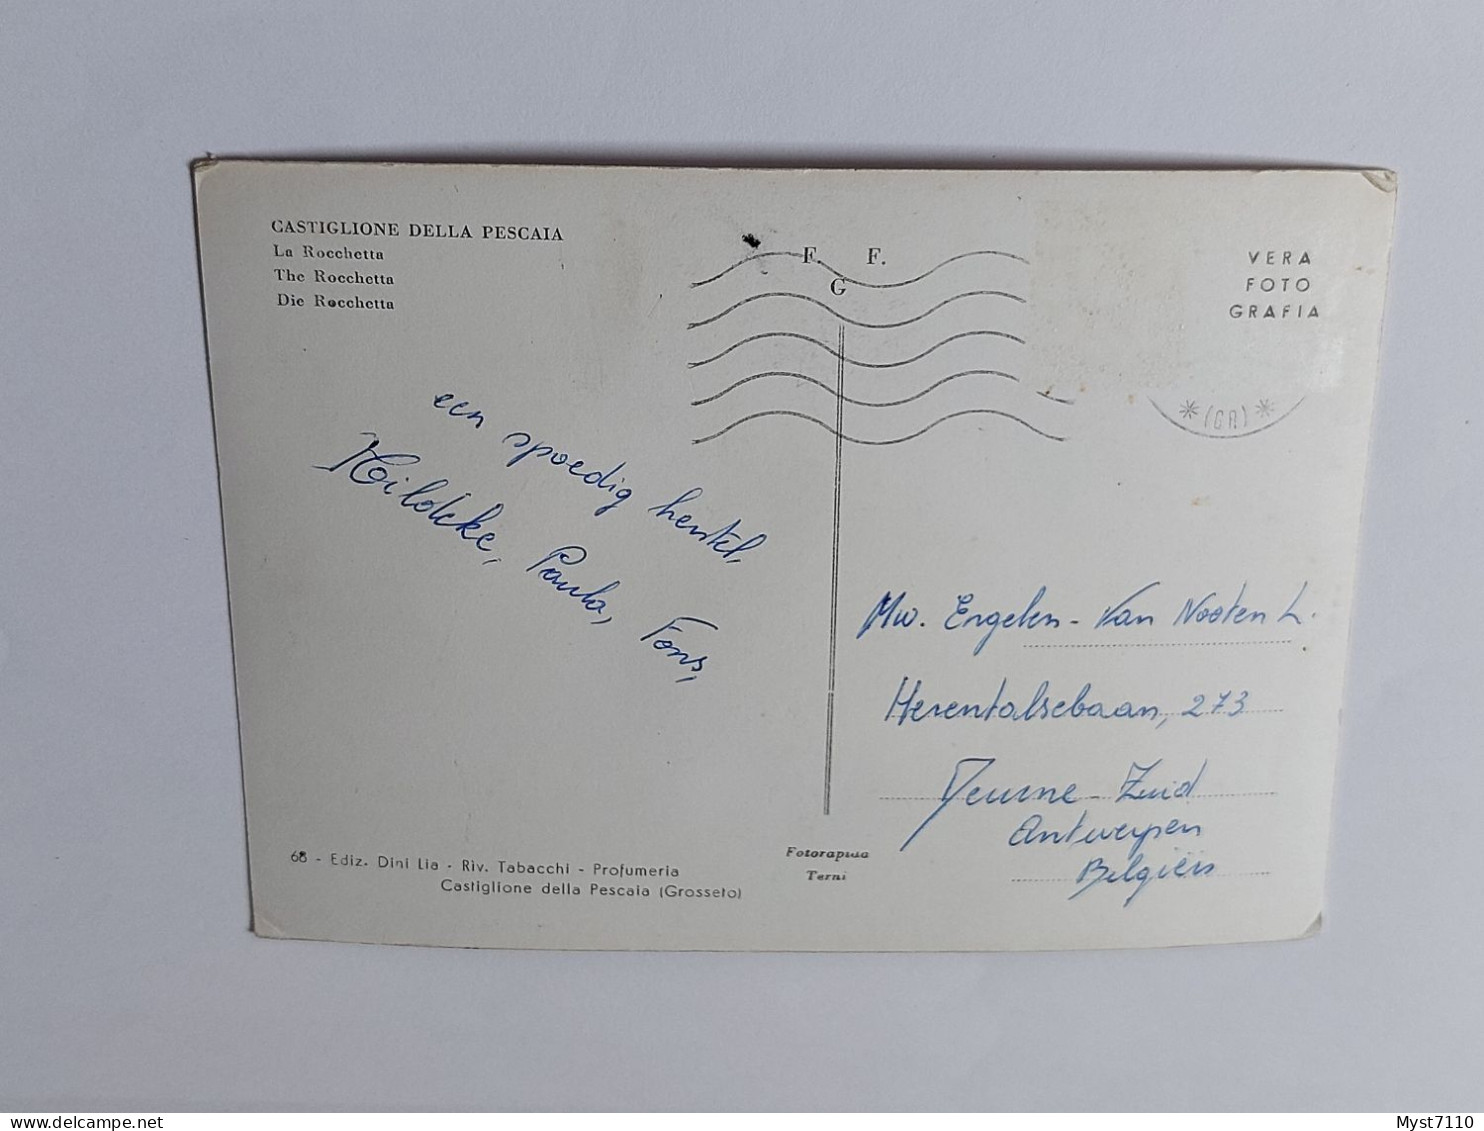 CASTIGLIONE DELLA PESCAIA
La Rocchetta
The Rocchetta
Die Rocchetta
F. F.
G
VERA
FOTO
GRAFIA
*(GR)*
een spoedig herstel,
Hildeke, Paula, Fons,
Mw. Engelen - Van Nooten L.
Herentalsebaan, 273
Deurne - Zuid
Antwerpen
Belgiën
68 - Ediz. Dini Lia - Riv. Tabacchi - Profumeria
Castiglione della Pescaia (Grosseto)
Fotorapida
Terni
Myst7110
delcampe.net